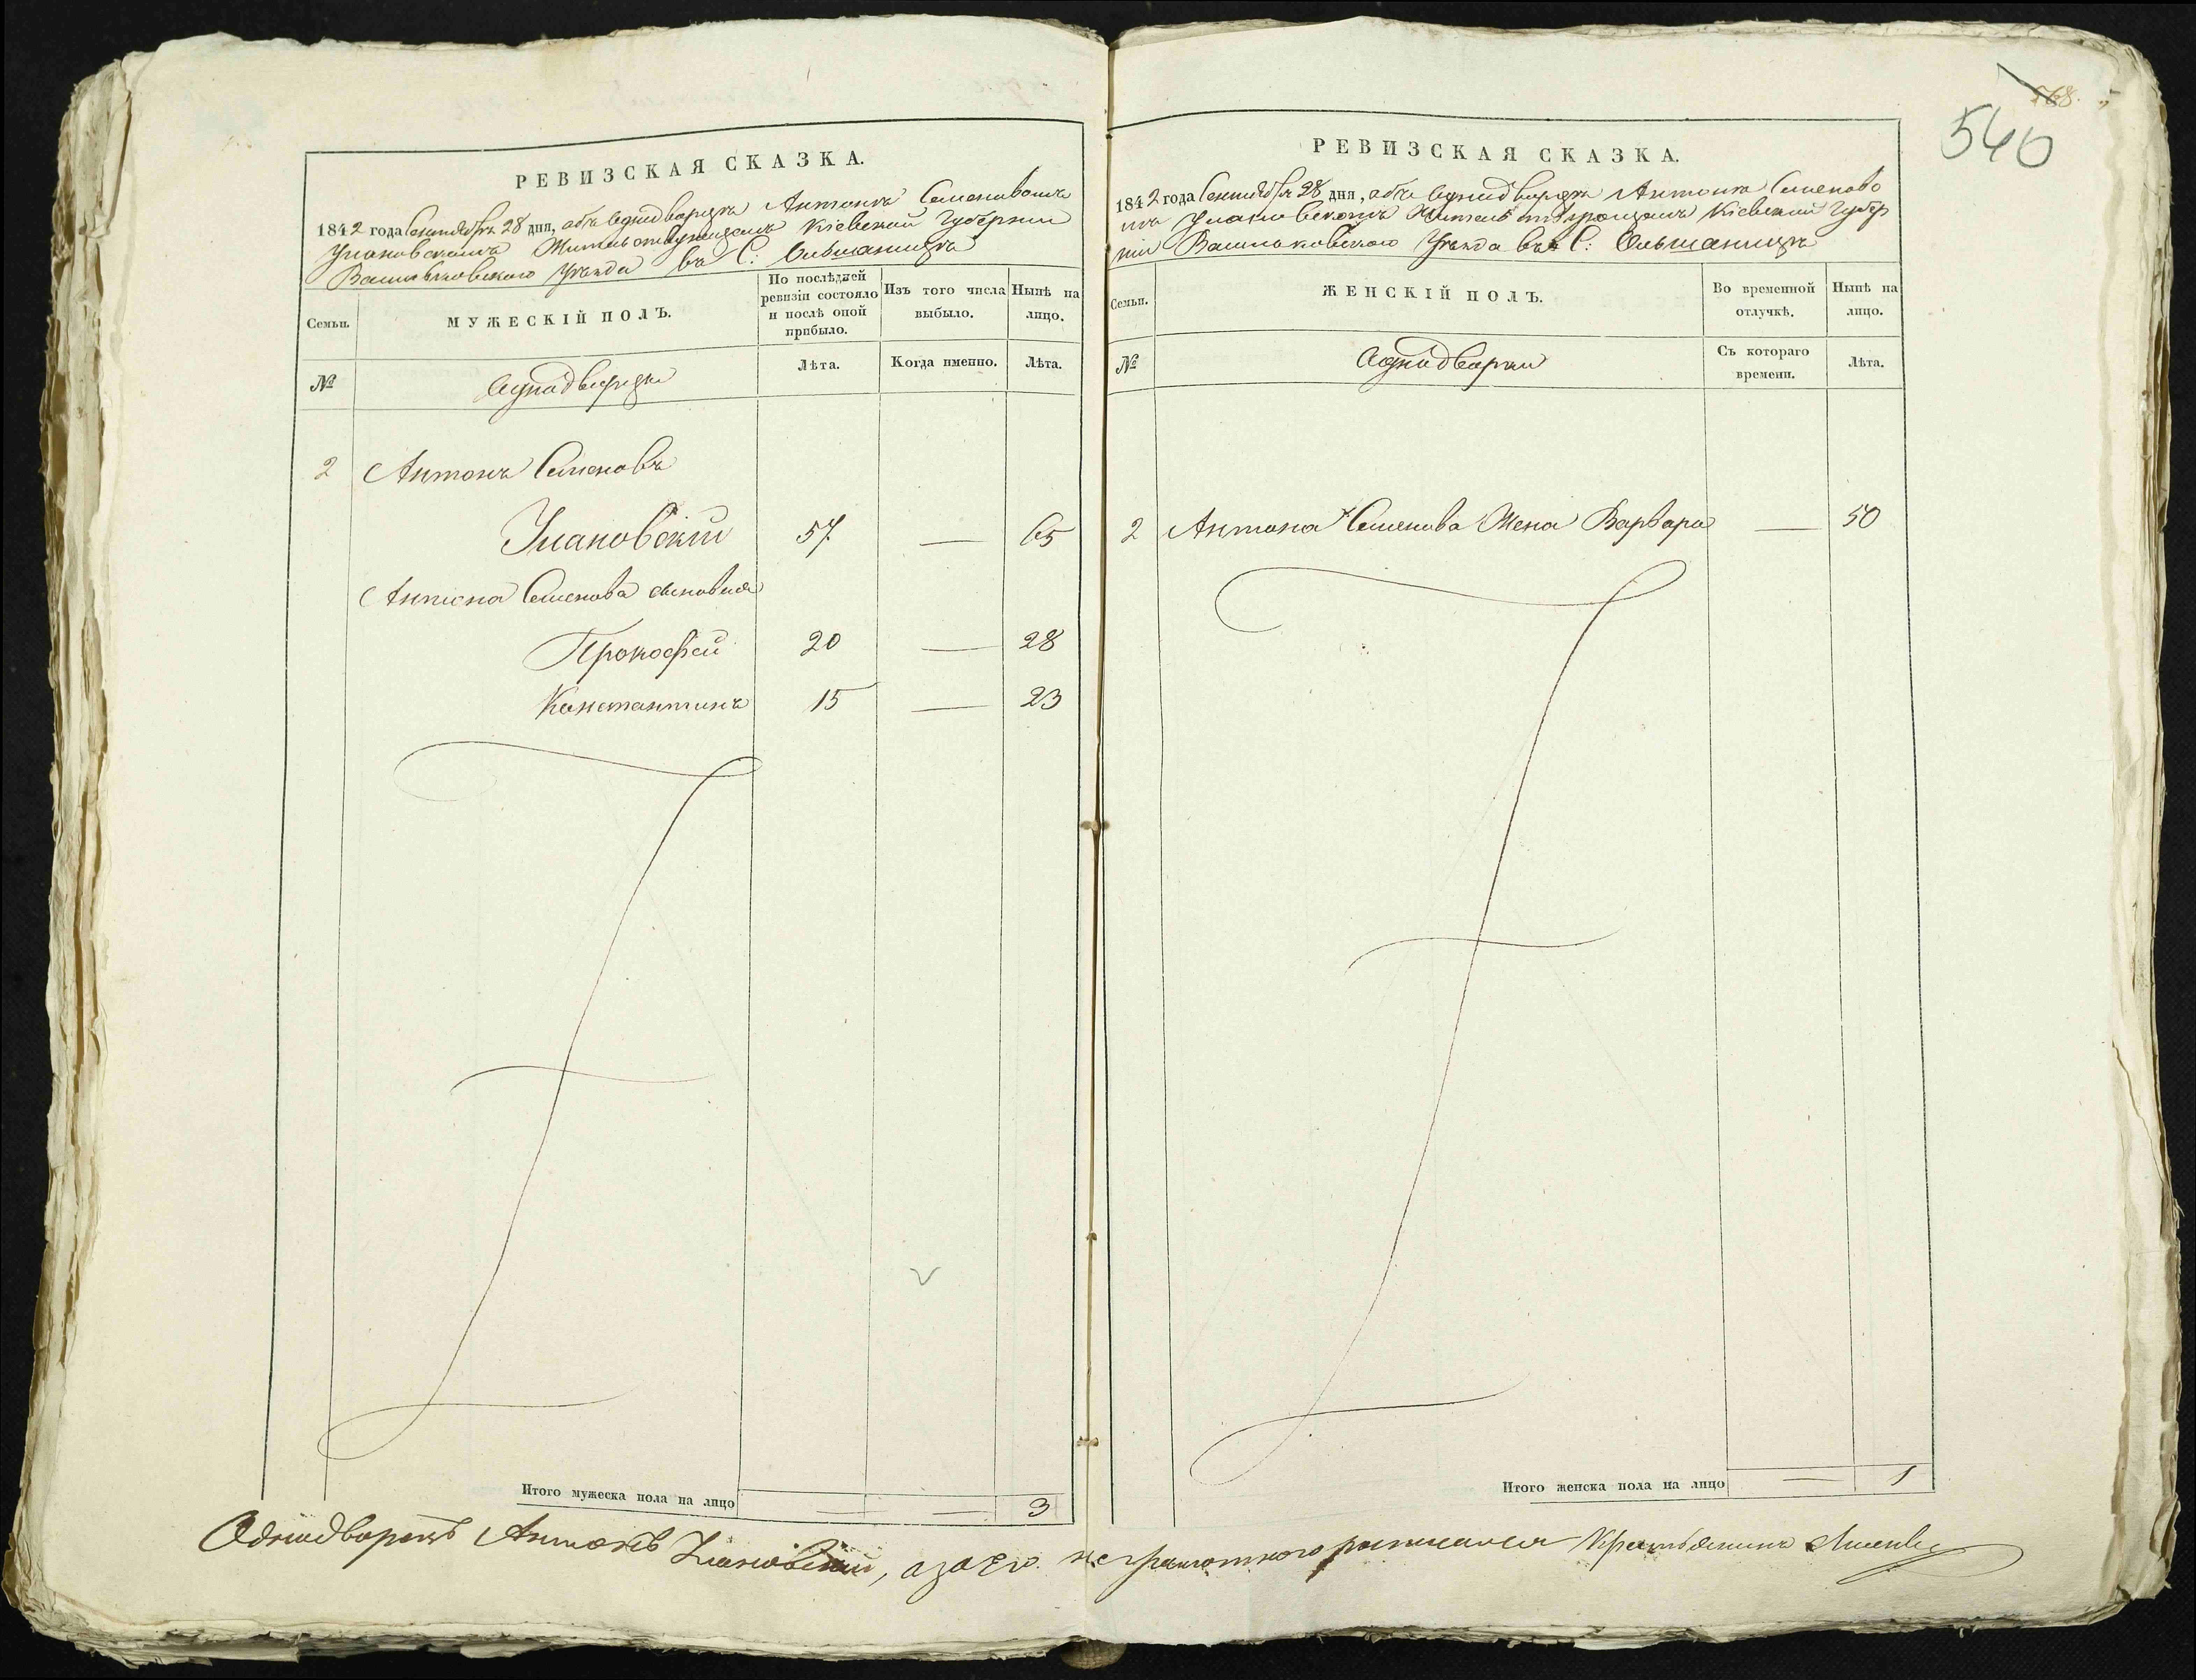 РЕВИЗСКАЯ СКАЗКА.
1842 года Сентября 28 дня, объ Однодворцѣ Антонѣ Семеновомъ
Улановскомъ Жительствующемъ Кіевской Губерніи
Васильковского Уѣзда въ С: Ольшаницѣ
Семьи.
МУЖЕСКІЙ ПОЛЪ.
По послѣдней ревизіи состояло и послѣ оной прибыло.
Изъ того числа выбыло.
Нынѣ на лицо.
№
Однодворцы
Лѣта.
Когда именно.
Лѣта.
2 Антонъ Семеновъ
Улановскій 57 — 65
Антона Семенова сыновья
Прокофей 20 — 28
Константинъ 15 — 23
Итого мужеска пола на лицо — — 3
568.
540
РЕВИЗСКАЯ СКАЗКА.
1842 года Сентября 28 дня, объ Однодворцѣ Антонѣ Семеново
мъ Улановскомъ Кіевской Губер
ніи Васильковского Уѣзда въ С: Ольшаницѣ
Семьи.
ЖЕНСКІЙ ПОЛЪ.
Во временной отлучкѣ.
Нынѣ на лицо.
№
Однодворки
Съ котораго времени.
Лѣта.
2 Антона Семенова Жена Варвара — 50
Итого женска пола на лицо — 1
Однодворецъ Антонъ Улановский, а за его неграмотного росписался